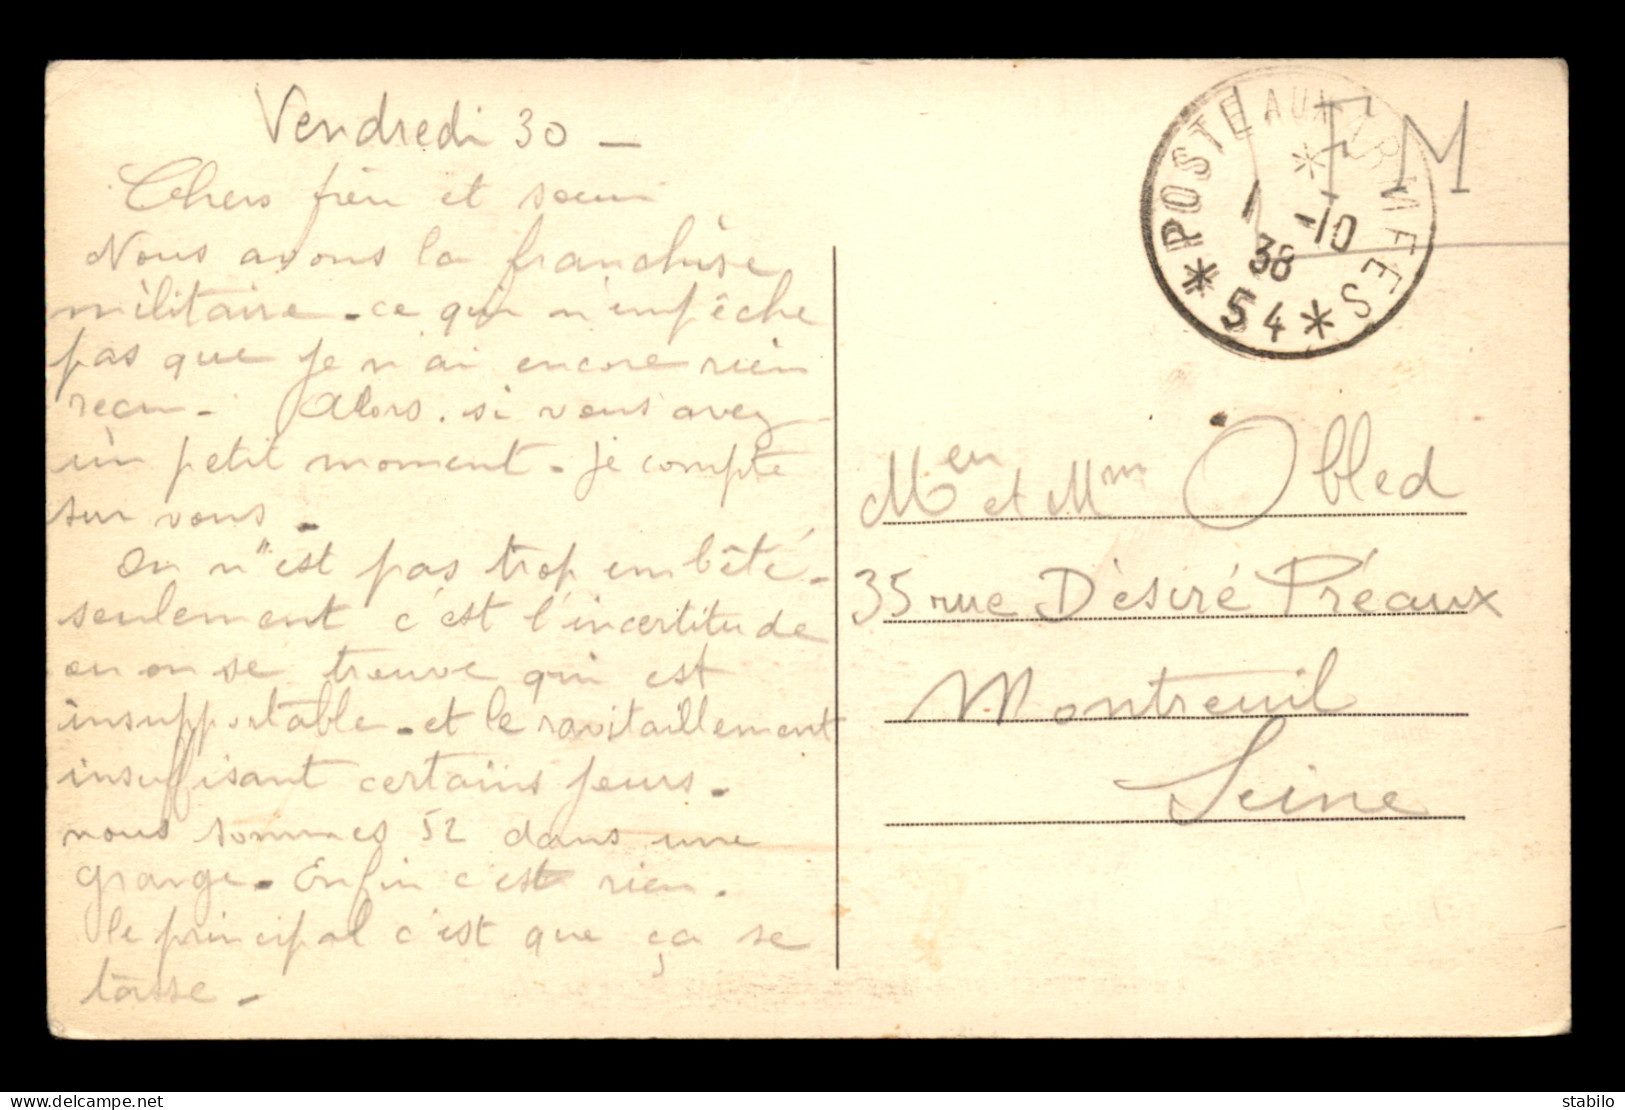 Vendredi 30 -
Chers frère et soeur
Nous avons la franchise
militaire - ce qui n'empêche
pas que je n'ai encore rien
reçu - Alors, si vous avez
un petit moment - je compte
sur vous -
On n'est pas trop embêté -
seulement c'est l'incertitude
où on se trouve qui est
insupportable - et le ravitaillement
insuffisant certains jours -
nous sommes 52 dans une
grange - Enfin c'est rien.
le principal c'est que ça se
tasse -
FM
POSTE AUX ARMEES
1 -10
38
* 54 *
Meur et Mme Obled
35 rue Désiré Préaux
Montreuil
Seine
Delcampe.net
stabilo